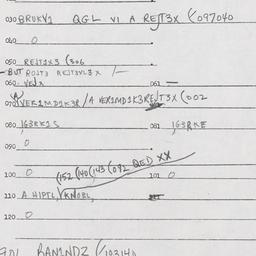 030 BRUKV1 QGL VI A REJT3X (097040
040 0
050 REJT3X3 (306
- BUT ROJT3 REJT3VL3X /-
060 VEJX 061 —
070 VER1MD1K3R / A VER1MD1K3REJT3X (002
080 JG3RK1S 081 JG3RKE
090 0
(152 (140 (143 (092 QED XX
100 0 101 0
110 A HIPTL / KNOBL,
120 0
RAN1ND2 (103140